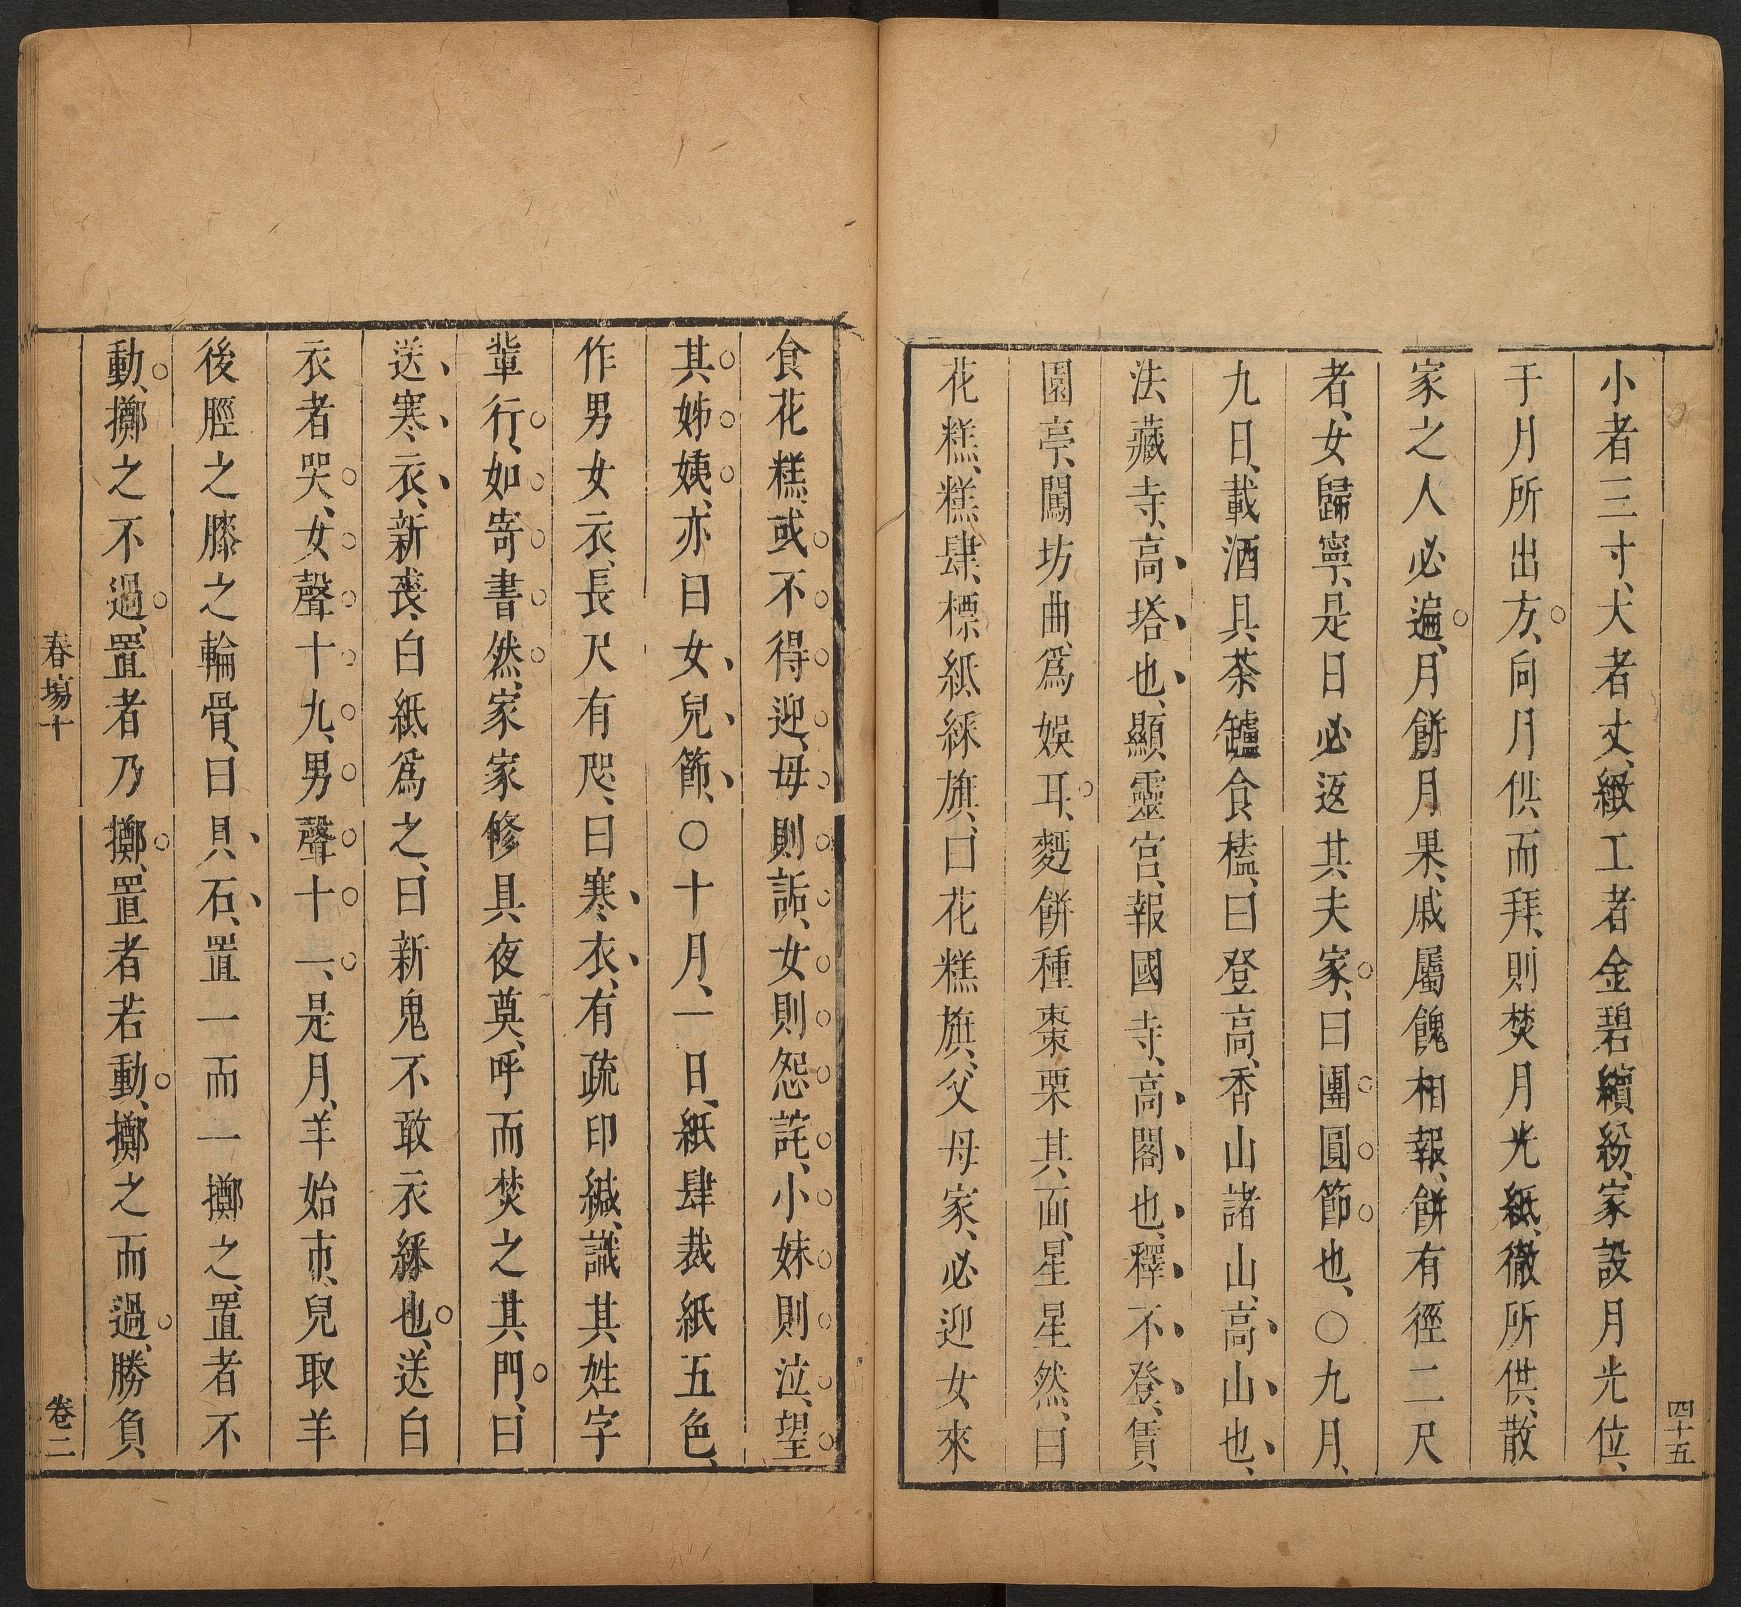 四十五
小者三寸、大者丈、緻工者金碧繽紛、家設月光位、
于月所出方、向月供而拜、則焚月光紙、徹所供、散
家之人必遍、月餅月果、戚屬餽相報、餅有徑二尺
者、女歸寧、是日必返其夫家、曰團圓節也、○九月、
九日、載酒具、茶罏、食榼、曰登高、香山諸山、高山也、
法藏寺、高塔也、顯靈宮、報國寺、高閣也、釋不登、賃
園亭、闖坊曲、爲娛耳、麪餅種棗栗其面、星星然、曰
花糕、糕肆、標紙綵旗、曰花糕旗、父母家、必迎女來
食花糕、或不得迎、母則詬、女則怨詫、小妹則泣、望
其姊姨、亦曰女兒節、○十月、一日、紙肆裁紙五色、
作男女衣、長尺有咫、曰寒衣、有疏印緘、識其姓字
輩行、如寄書然、家家修具夜奠、呼而焚之其門、曰
送寒衣、新喪、白紙爲之、曰新鬼不敢衣綵也、送白
衣者哭、女聲十九、男聲十一、是月、羊始市、兒取羊
後脛之膝之輪骨、曰貝石、置一而一擲之、置者不
動、擲之不過、置者乃擲、置者若動、擲之而過、勝負
春塲十
卷二